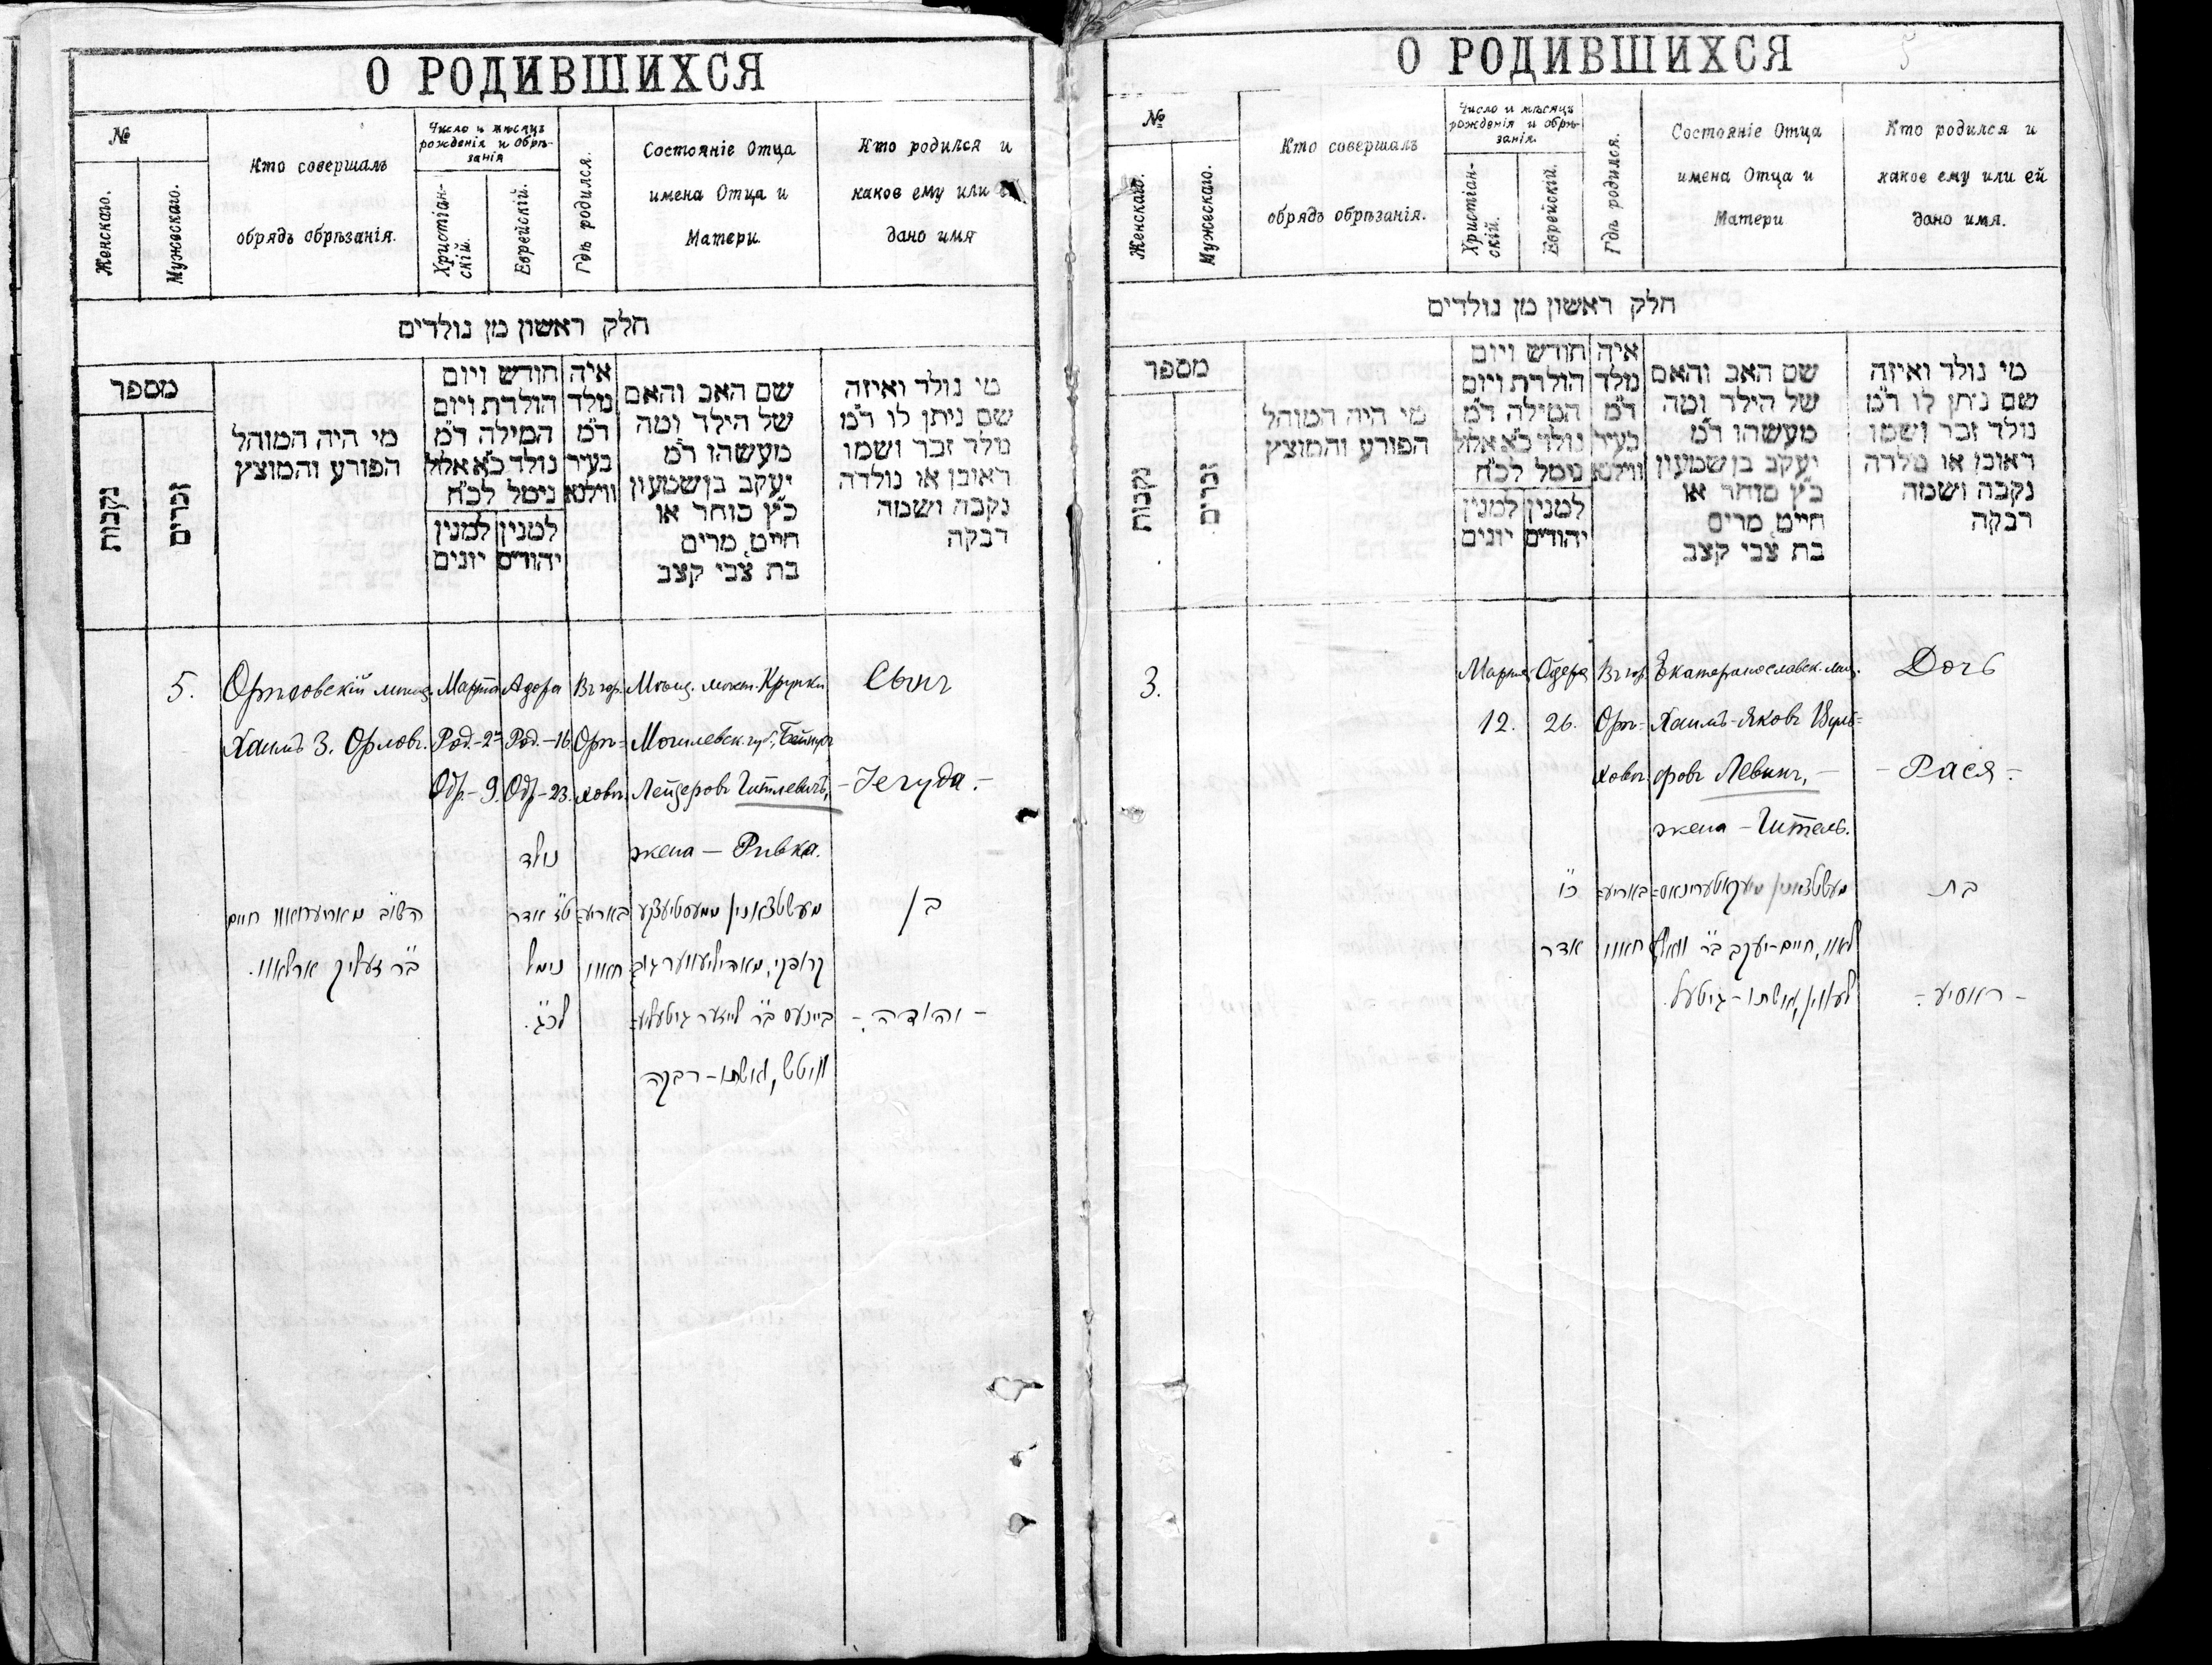 О РОДИВШИХСЯ
№
Женскаго.
Мужескаго.
Кто совершалъ
обрядъ обрѣзанія.
Число и мѣсяцъ
рожденія и обрѣ-
занія
Христіан-
скій.
Еврейскій.
Гдѣ родился.
Состояніе Отца
имена Отца и
Матери.
Кто родился и
какое ему или
дано имя
חלק ראשון מן נולדים
מספר
נקבות
זכרים
מי היה המוהל
הפורע והמוצץ
חודש ויום
הולדת ויום
המילה ד"מ
נולד כ"א אלול
נימל לכ"ח
למנין
יונים
למנין
יהודים
איה
נולד
ד"מ
בעיר
ווילנא
שם האב והאם
של הילד ומה
מעשהו ד"מ
יעקב בן שמעון
כ"ץ סוחר או
חייט, מרים
בת צבי קצב
מי נולד ואיזה
שם ניתן לו ד"מ
נולד זכר ושמו
ראובן או נולדה
נקבה ושמה
רבקה
5.
Хаимъ З. Орловъ.
Марта
Род.-2
Обр.-9.
Адера
Род.-16
Обр-23.
נולד
ט"ז אדר
נימול
לכ"ג.
Въ гор.
Орѣ-
ховѣ.
באריע-
חאוו
Мѣщ. мѣст. Крупки
Могилевск. губ.,
Лейзеровъ Гителевичъ,
жена — Ривка.
ווитש, ואשתו - רבקה
Сынъ
- Іегуда. -
בן
- יהודה. -
חיים
ב"ר זעליק ארלאוו.
О РОДИВШИХСЯ
5
№
Женскаго.
Мужескаго.
Кто совершалъ
обрядъ обрѣзанія.
Число и мѣсяцъ
рожденія и обрѣ-
занія.
Христіан-
скій.
Еврейскій.
Гдѣ родился.
Состояніе Отца
имена Отца и
Матери
Кто родился и
какое ему или ей
дано имя.
חלק ראשון מן נולדים
מספר
נקבות
זכרים
מי היה המוהל
הפורע והמוצץ
חודש ויום
הולדת ויום
המילה ד"מ
נולד כ"א אלול
נימל לכ"ח
למנין
יונים
למנין
יהודים
איה
נולד
ד"מ
בעיר
ווילנא
שם האב והאם
של הילד ומה
מעשהו ד"מ
יעקב בן שמעון
כ"ץ סוחר או
חייט, מרים
בת צבי קצב
מי נולד ואיזה
שם ניתן לו ד"מ
נולד זכר ושמו
ראובן או נולדה
נקבה ושמה
רבקה
3.
Марта
12.
Адера
26.
כ"ו
אדר
Въ гор.
Орѣ-
ховѣ.
באריע-
חאוו
Екатеринославск. мѣщ.
Хаимъ-Яковъ Вуль-
фовъ Левинъ, —
жена - Гитель.
לעווין, ואשתו - גיטעל.
Дочь
- Рася. -
בת
- ראסיע. -